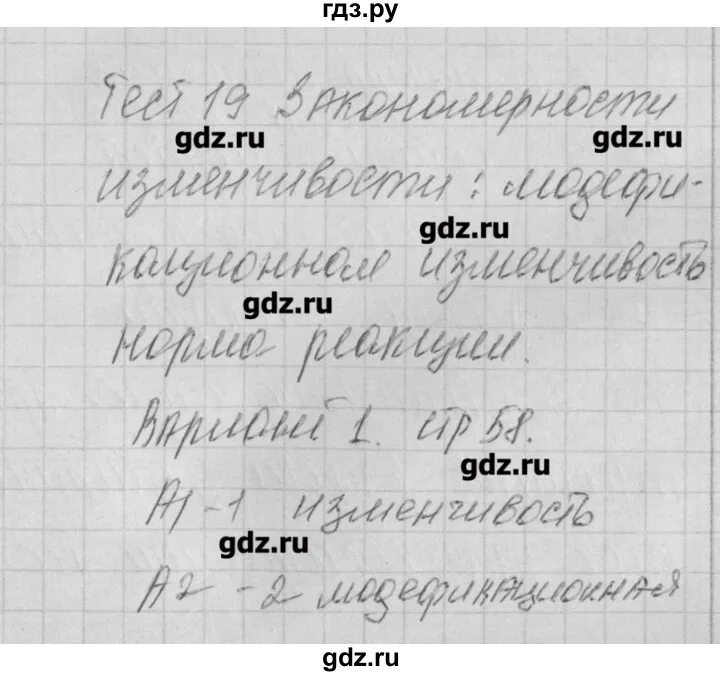 гдз.ру
Тест 19 Закономерности
gdz.ru
gdz.ru
изменчивости: модефи-
gdz.ru
кационная изменчивость
gdz.ru
норма реакции.
Вариант 1. стр 58.
gdz.ru
А1-1 изменчивость
gdz.ru
А2-2 модефикационная
gdz.ru